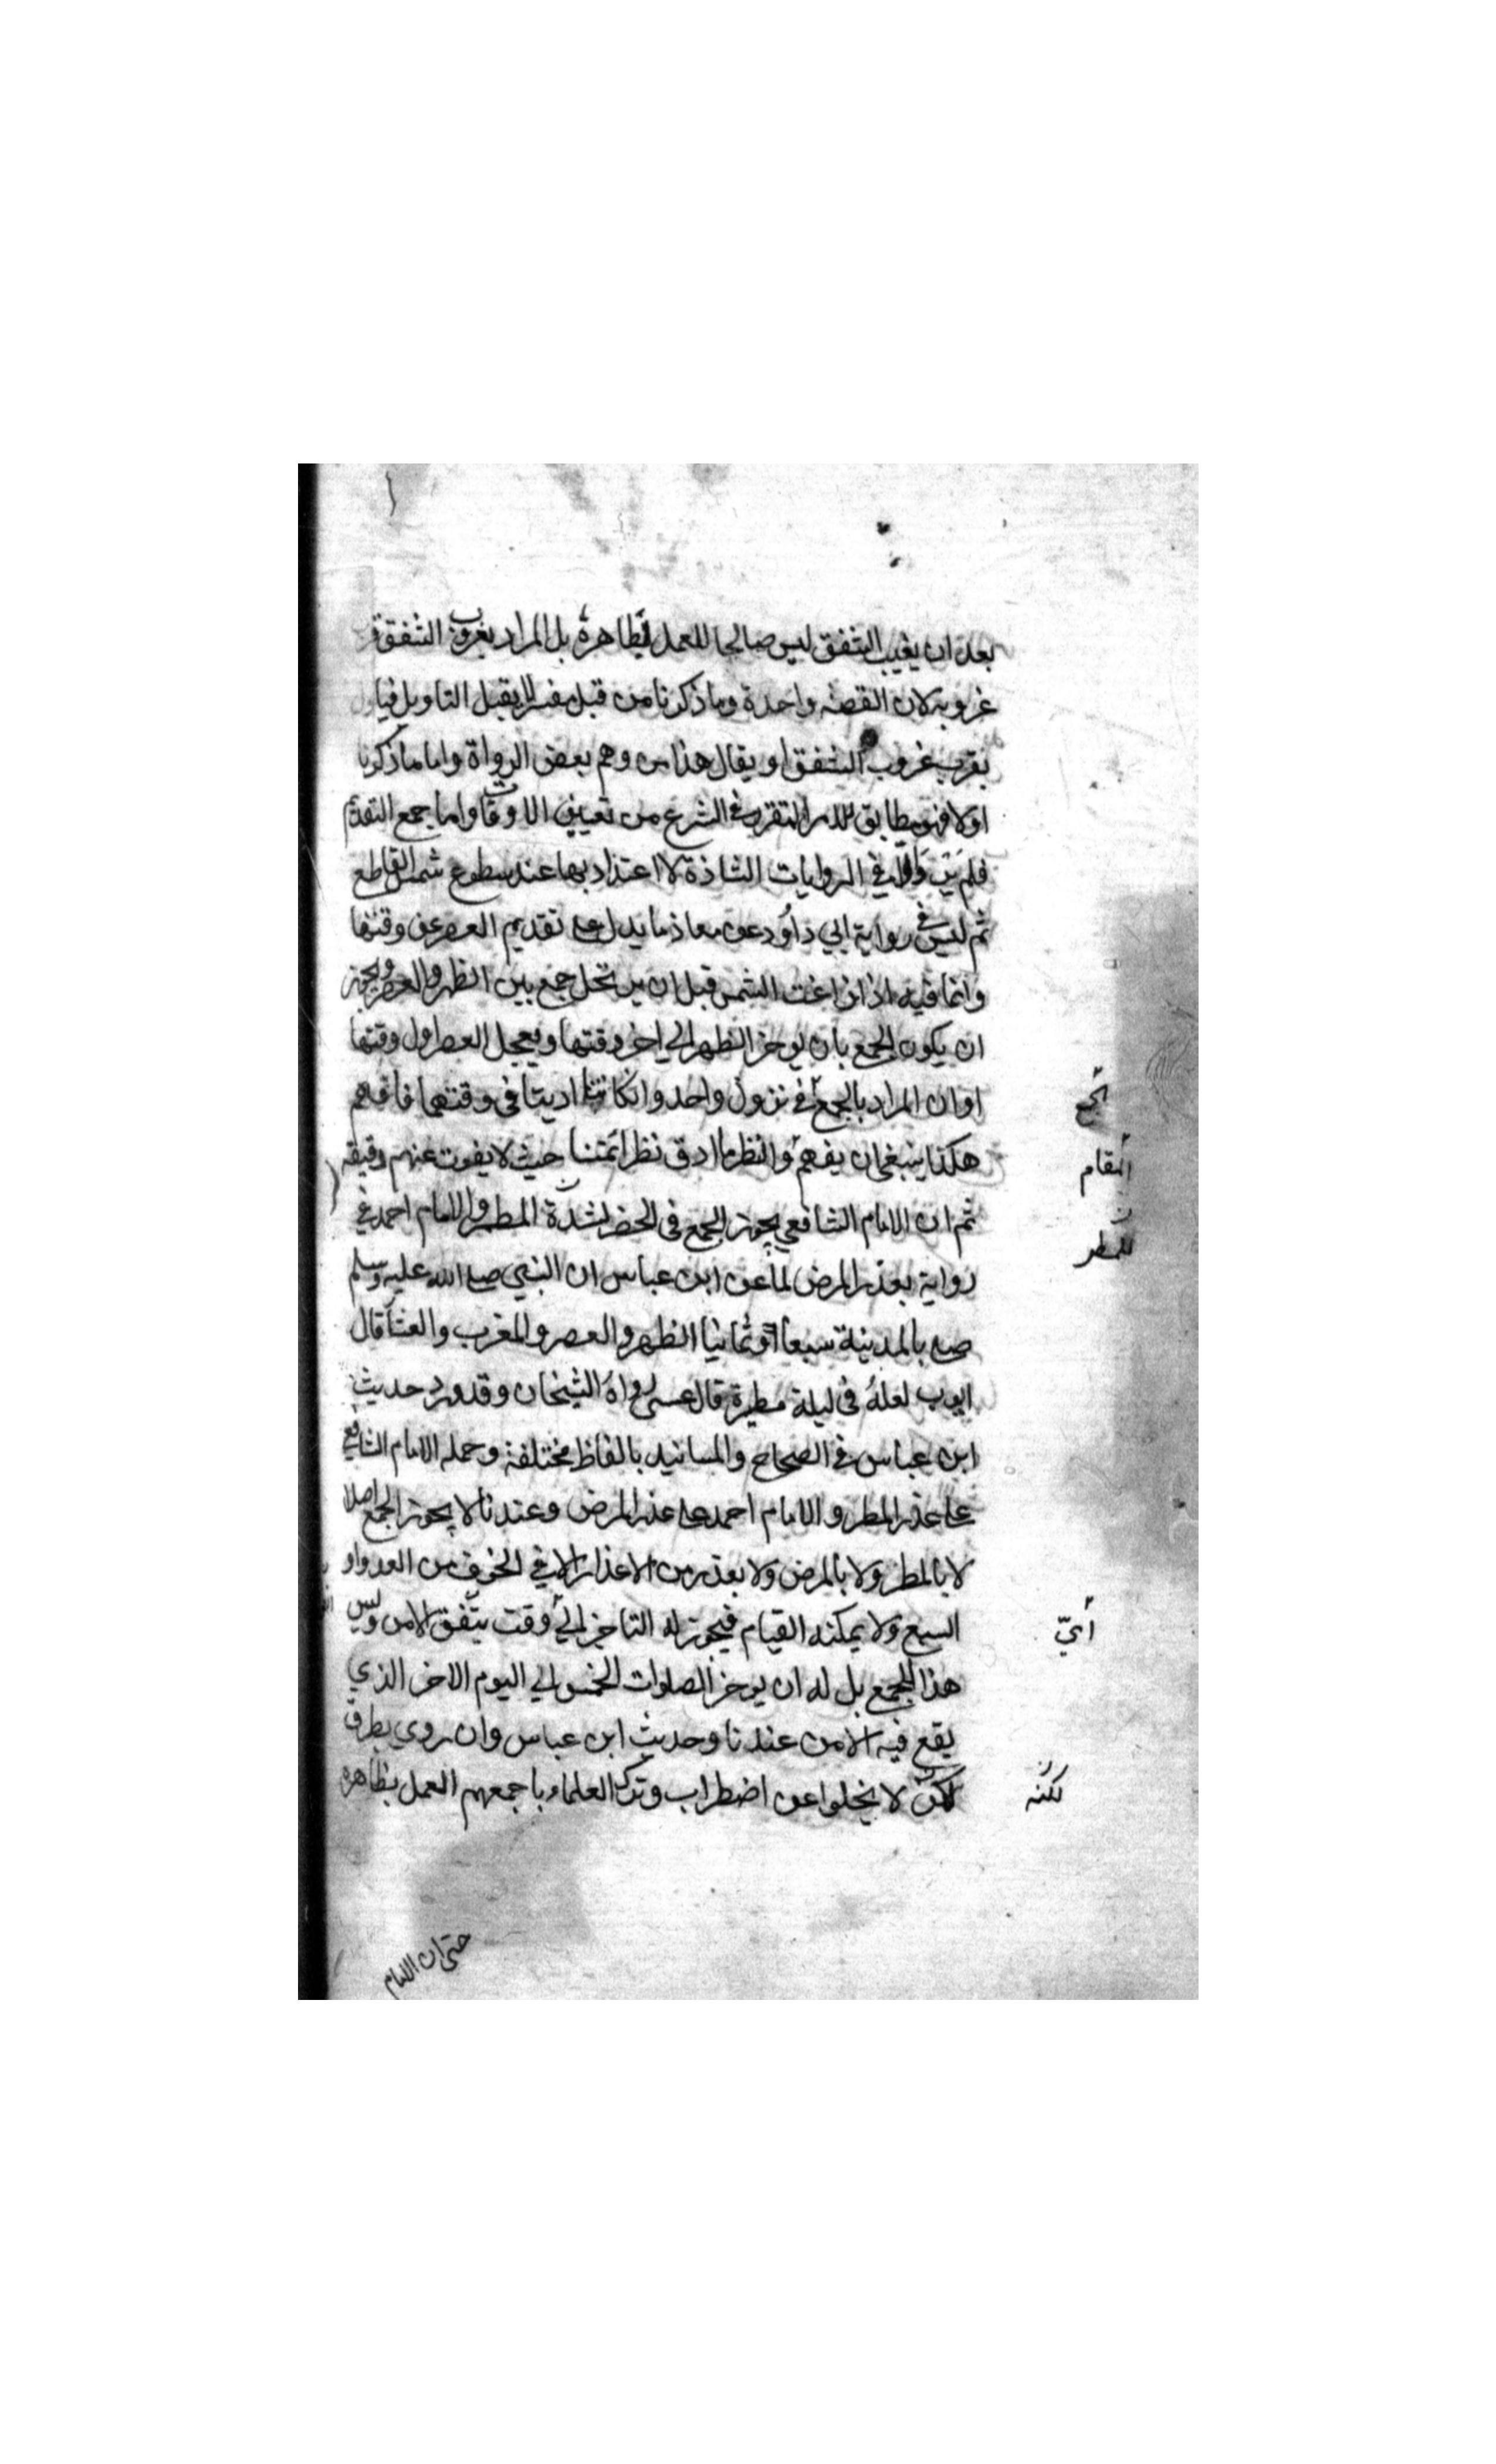 بعد ان يغيب الشفق ليس صالحا للعمل بظاهرة بل المراد بغروب الشفق قرب
غروبه لان القصة واحدة وما ذكرنا من قبل مفسر لا يقبل التاويل فياول
بقرب غروب الشفق او يقال هذا من وهم بعض الرواة واما ما ذكرنا
اولا فهو مطابق للامر المتقرر في الشرع من تعيين الاوقات واما جمع التقديم
فلم يرد الا في الروايات الشاذة لا اعتداد بها عند سطوع شمس القاطع
ثم ليس في رواية ابي داؤد عن معاذ ما يدل على تقديم العصر عن وقتها
وانما فيه اذا زاغت الشمس قبل ان يرتحل جمع بين الظهر والعصر ويجوز
ان يكون الجمع بان يوخر الظهر الي اخر وقتها ويعجل العصر اول وقتها
او ان المراد بالجمع في نزول واحد وان كانتا اديتا في وقتهما فافهم
الجمع
هكذا ينبغي ان يفهم وانظر ما ادق نظر ائمتنا حيث لا يفوت عنهم دقيقه
المقام
ثم ان الامام الشافعي يجوز الجمع في الحضر لشدة المطر والامام احمد في
للمطر
رواية بعذر المرض لما عن ابن عباس ان النبي صلى الله عليه وسلم
صلى بالمدينة سبعا وثمانيا الظهر والعصر والمغرب والعشا قال
ايوب لعله في ليلة مطيرة قال عسى رواه الشيخان وقد ورد حديث
ابن عباس في الصحاح والمسانيد بالفاظ مختلفة وحمله الامام الشافعي
على عذر المطر والامام احمد على عذر المرض وعندنا لا يجوز الجمع اصلا
لا بالمطر ولا بالمرض ولا بعذر من الاعذار الا في الخوف من العدو او
السبع ولا يمكنه القيام فيجوز له التاخير الي وقت يتفق الامن وليس
أيّ
هذا للجمع بل له ان يوخر الصلوات الخمس الي اليوم الاخر الذي
يقع فيه الامن عندنا وحديث ابن عباس وان روي بطرق
لكن لا يخلوا عن اضطراب وترك العلماء باجمعهم العمل بظاهره
لكنه
حتى ان الامام